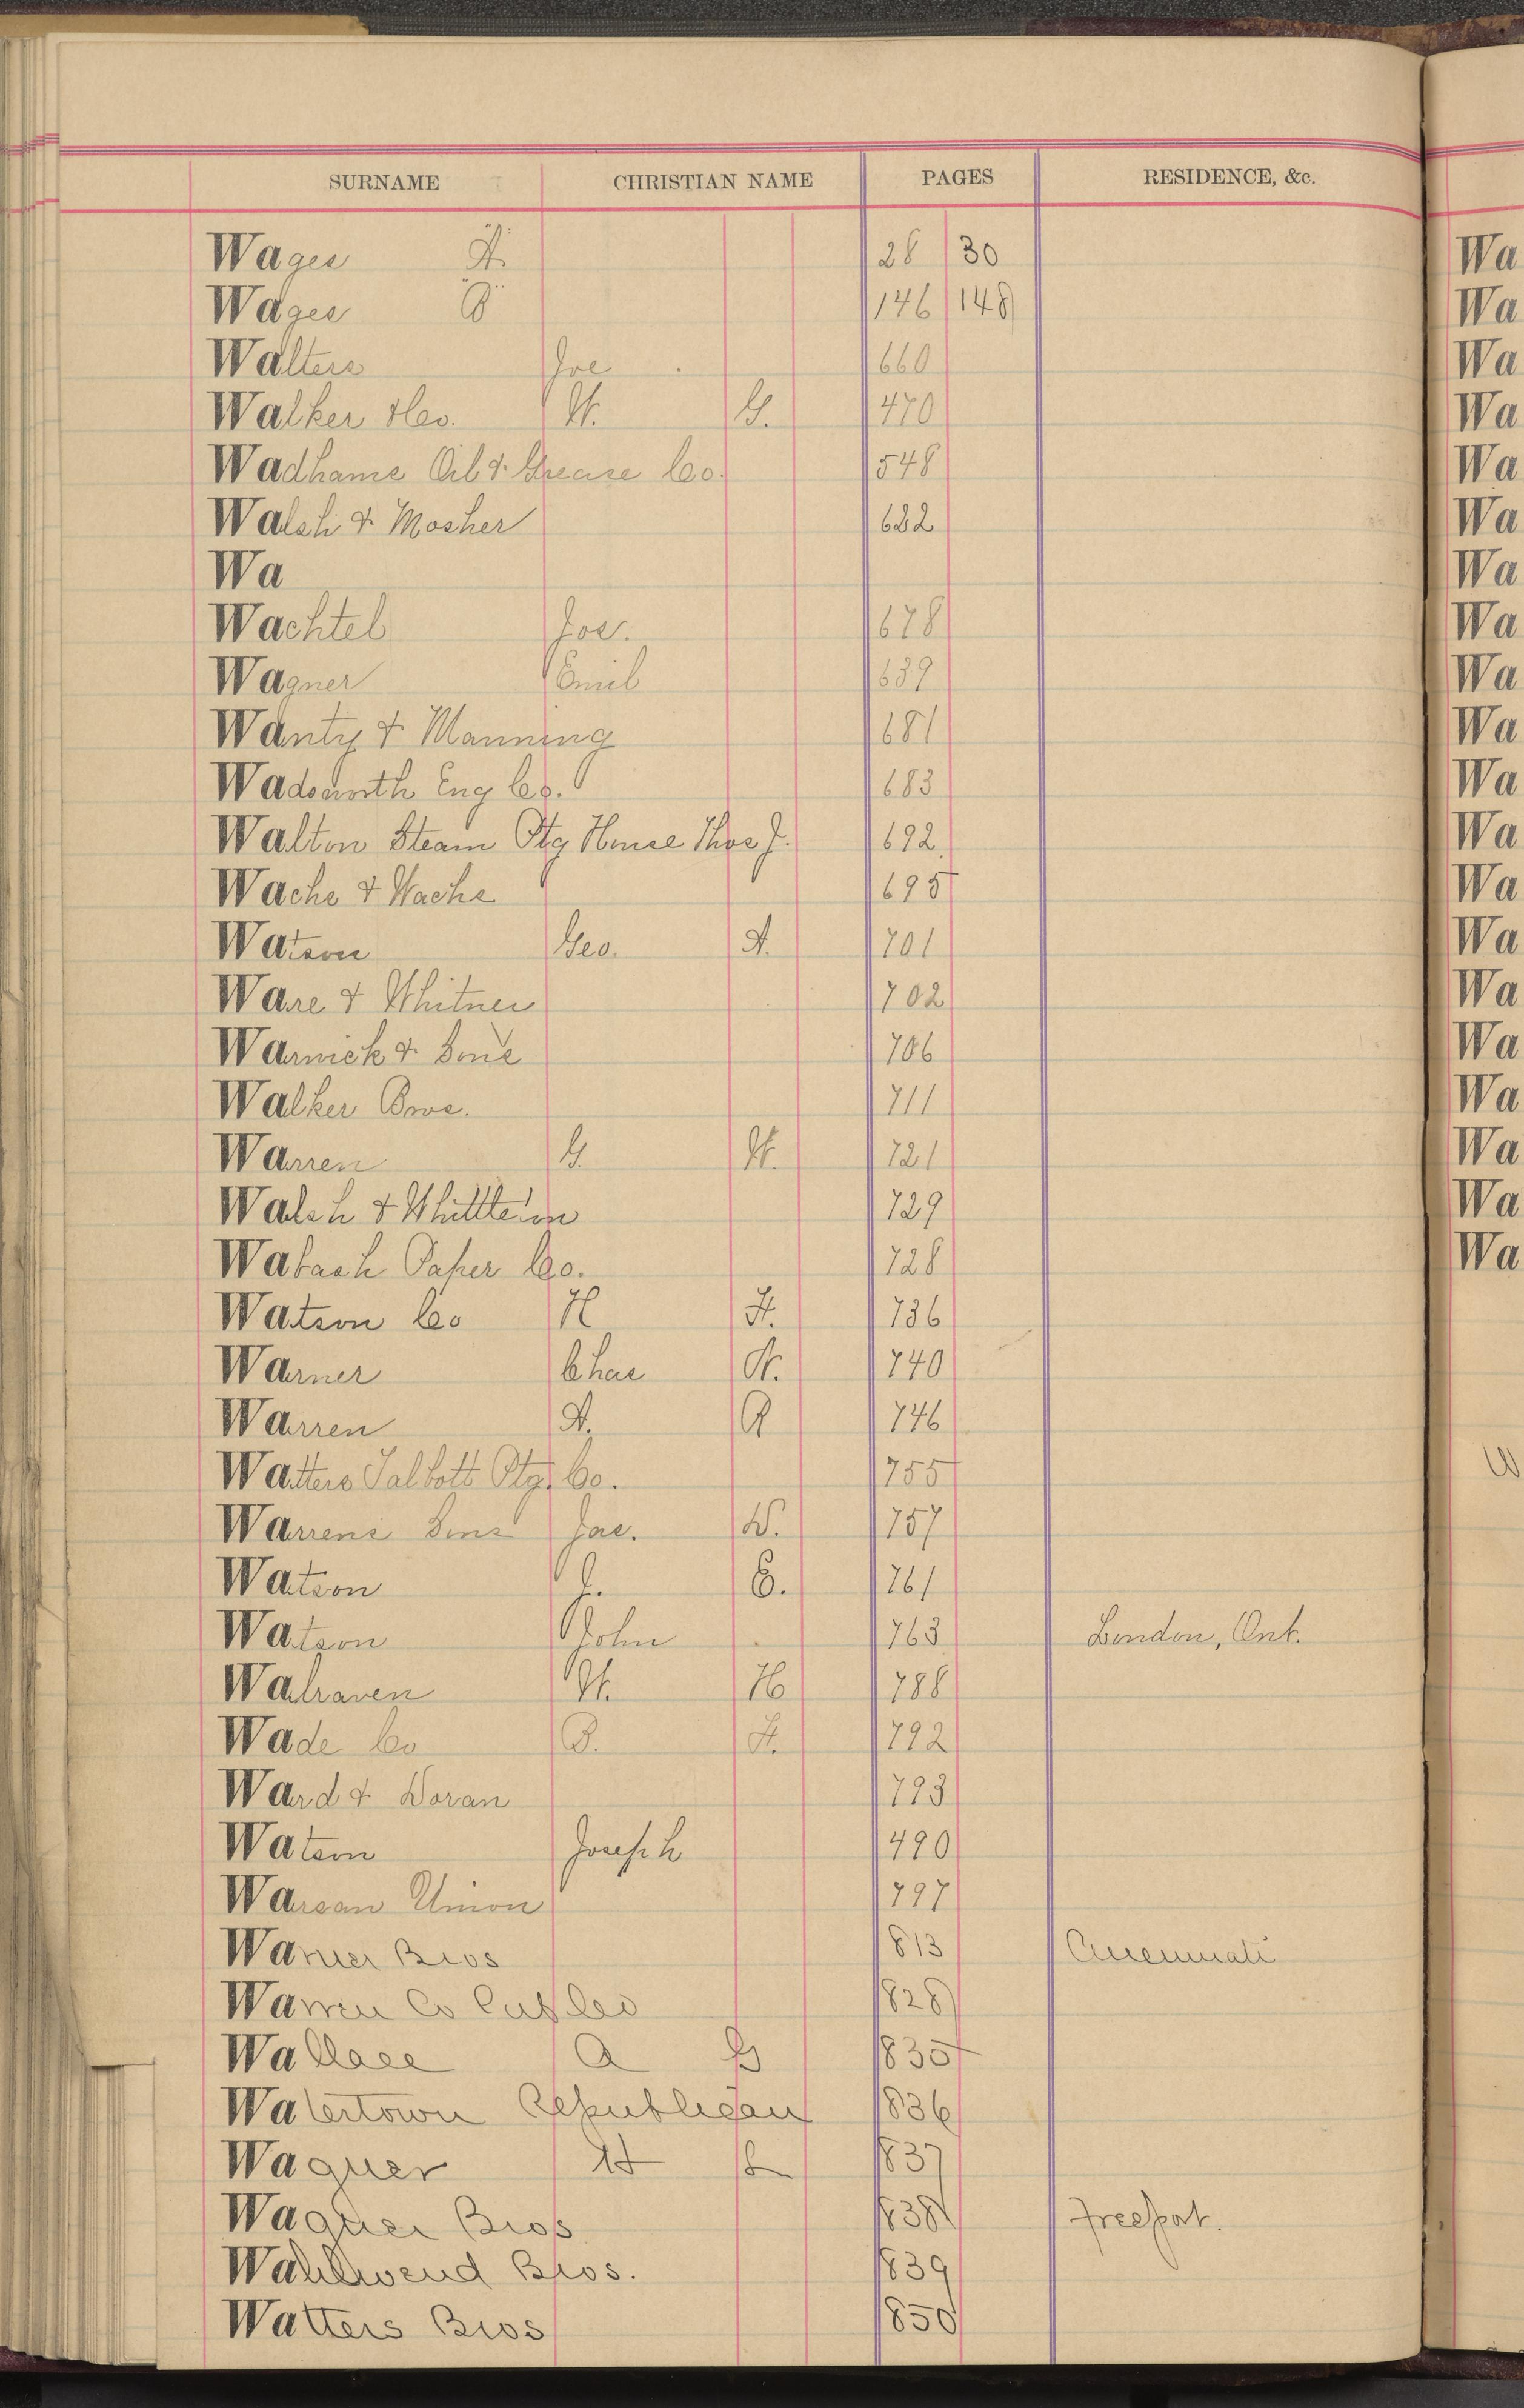 SURNAME CHRISTIAN NAME PAGES RESIDENCE, &c.
Wages "A" 28 30
Wages "B" 146 148
Walters Joe 660
Walker & Co. W. G. 470
Wadhams Oil & Grease Co. 548
Walsh & Mosher 622
Wa
Wachtel Jos. 678
Wagner Emil 639
Wanty & Manning 681
Wadsworth Eng Co. 683
Walton Steam Ptg House Thos J. 692
Wachs & Wachs 695
Watson Geo. A. 701
Ware & Whitner 702
Warwick & Sons 706
Walker Bros. 711
Warren G. W. 721
Walsh & 729
Wabash Paper Co. 728
Watson Co H F. 736
Warner Chas W. 740
Warren A. R 746
Watters Talbott Ptg. Co. 755
Warrens Sons Jas. D. 757
Watson J. C. 761
Watson John 763 London, Ont.
Walraven W. H 788
Wade Co B. F. 792
Ward & Doran 793
Watson Joseph 490
Warsaw Union 797
Warner Bros 813 Cincinnati
Warren Co Pub Co 828
Wallace A G 835
Watertown Republican 836
Wagner H L 837
Wagner Bros 838 Freeport.
Wahlwend Bros. 839
Watters Bros 850
Wa
Wa
Wa
Wa
Wa
Wa
Wa
Wa
Wa
Wa
Wa
Wa
Wa
Wa
Wa
Wa
Wa
Wa
Wa
Wa
W